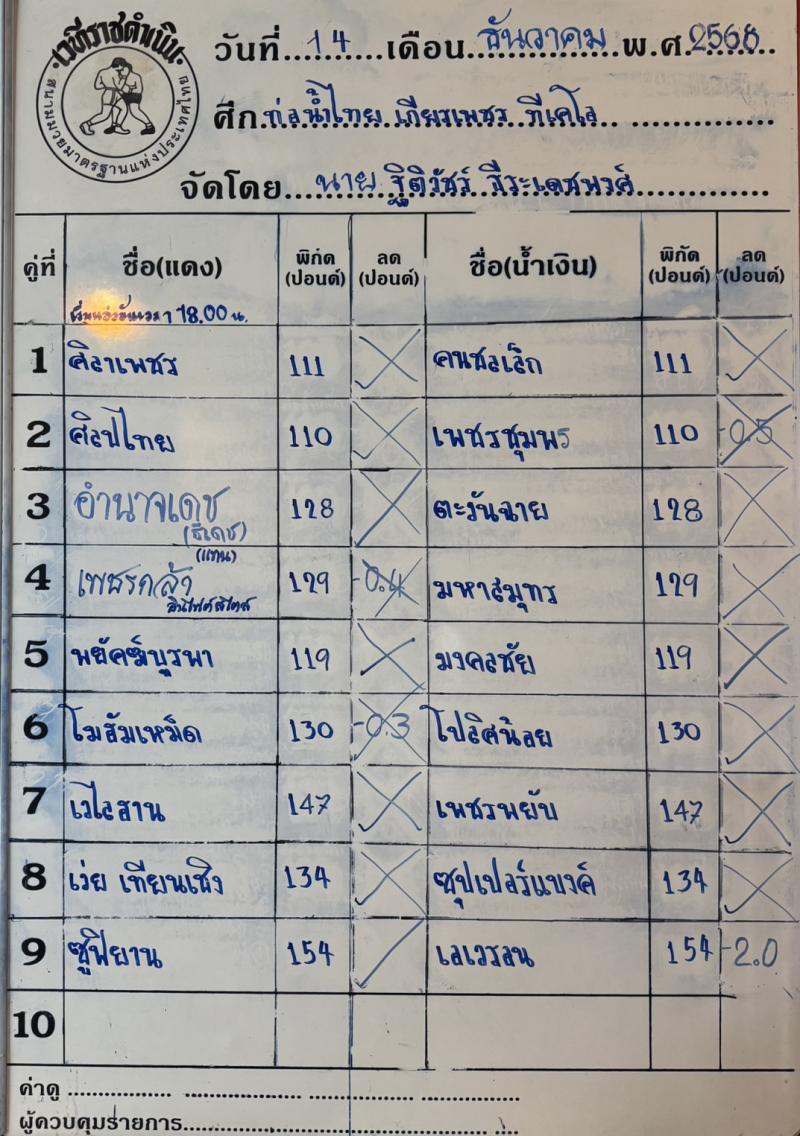 เวทีราชดำเนิน
สนามมวยมาตรฐานแห่งประเทศไทย
วันที่....14....เดือน..ธันวาคม..พ.ศ.2568
ศึก.ท่อน้ำไทย เกียรติเพชร ทีเคโอ
จัดโดย...นาย ฐิติวัชร์ ธีระเดชพงศ์
คู่ที่ ชื่อ(แดง) พิกัด (ปอนด์) ลด (ปอนด์) ชื่อ(น้ำเงิน) พิกัด (ปอนด์) ลด (ปอนด์)
18.00 น.
1 ศิลาเพชร 111 คนชลเล็ก 111
2 ศิลปไทย 110 เพชรชุมพร 110 -0.5
3 อำนาจเดช (ธีเดช) 128 ตะวันฉาย 128
(แทน)
4 เพชรกล้า 129 -0.4 มหาสมุทร 129
5 พยัคฆ์บูรพา 119 มงคลชัย 119
6 โมฮัมเหม็ด 130 -0.3 โปลิศน้อย 130
7 147 เพชรพยับ 147
8 เว่ย เทียนเชิง 134 ซุปเปอร์แบงค์ 134
9 ซูฟิยาน 154 154 -2.0
10
ค่าดู
ผู้ควบคุมรายการ